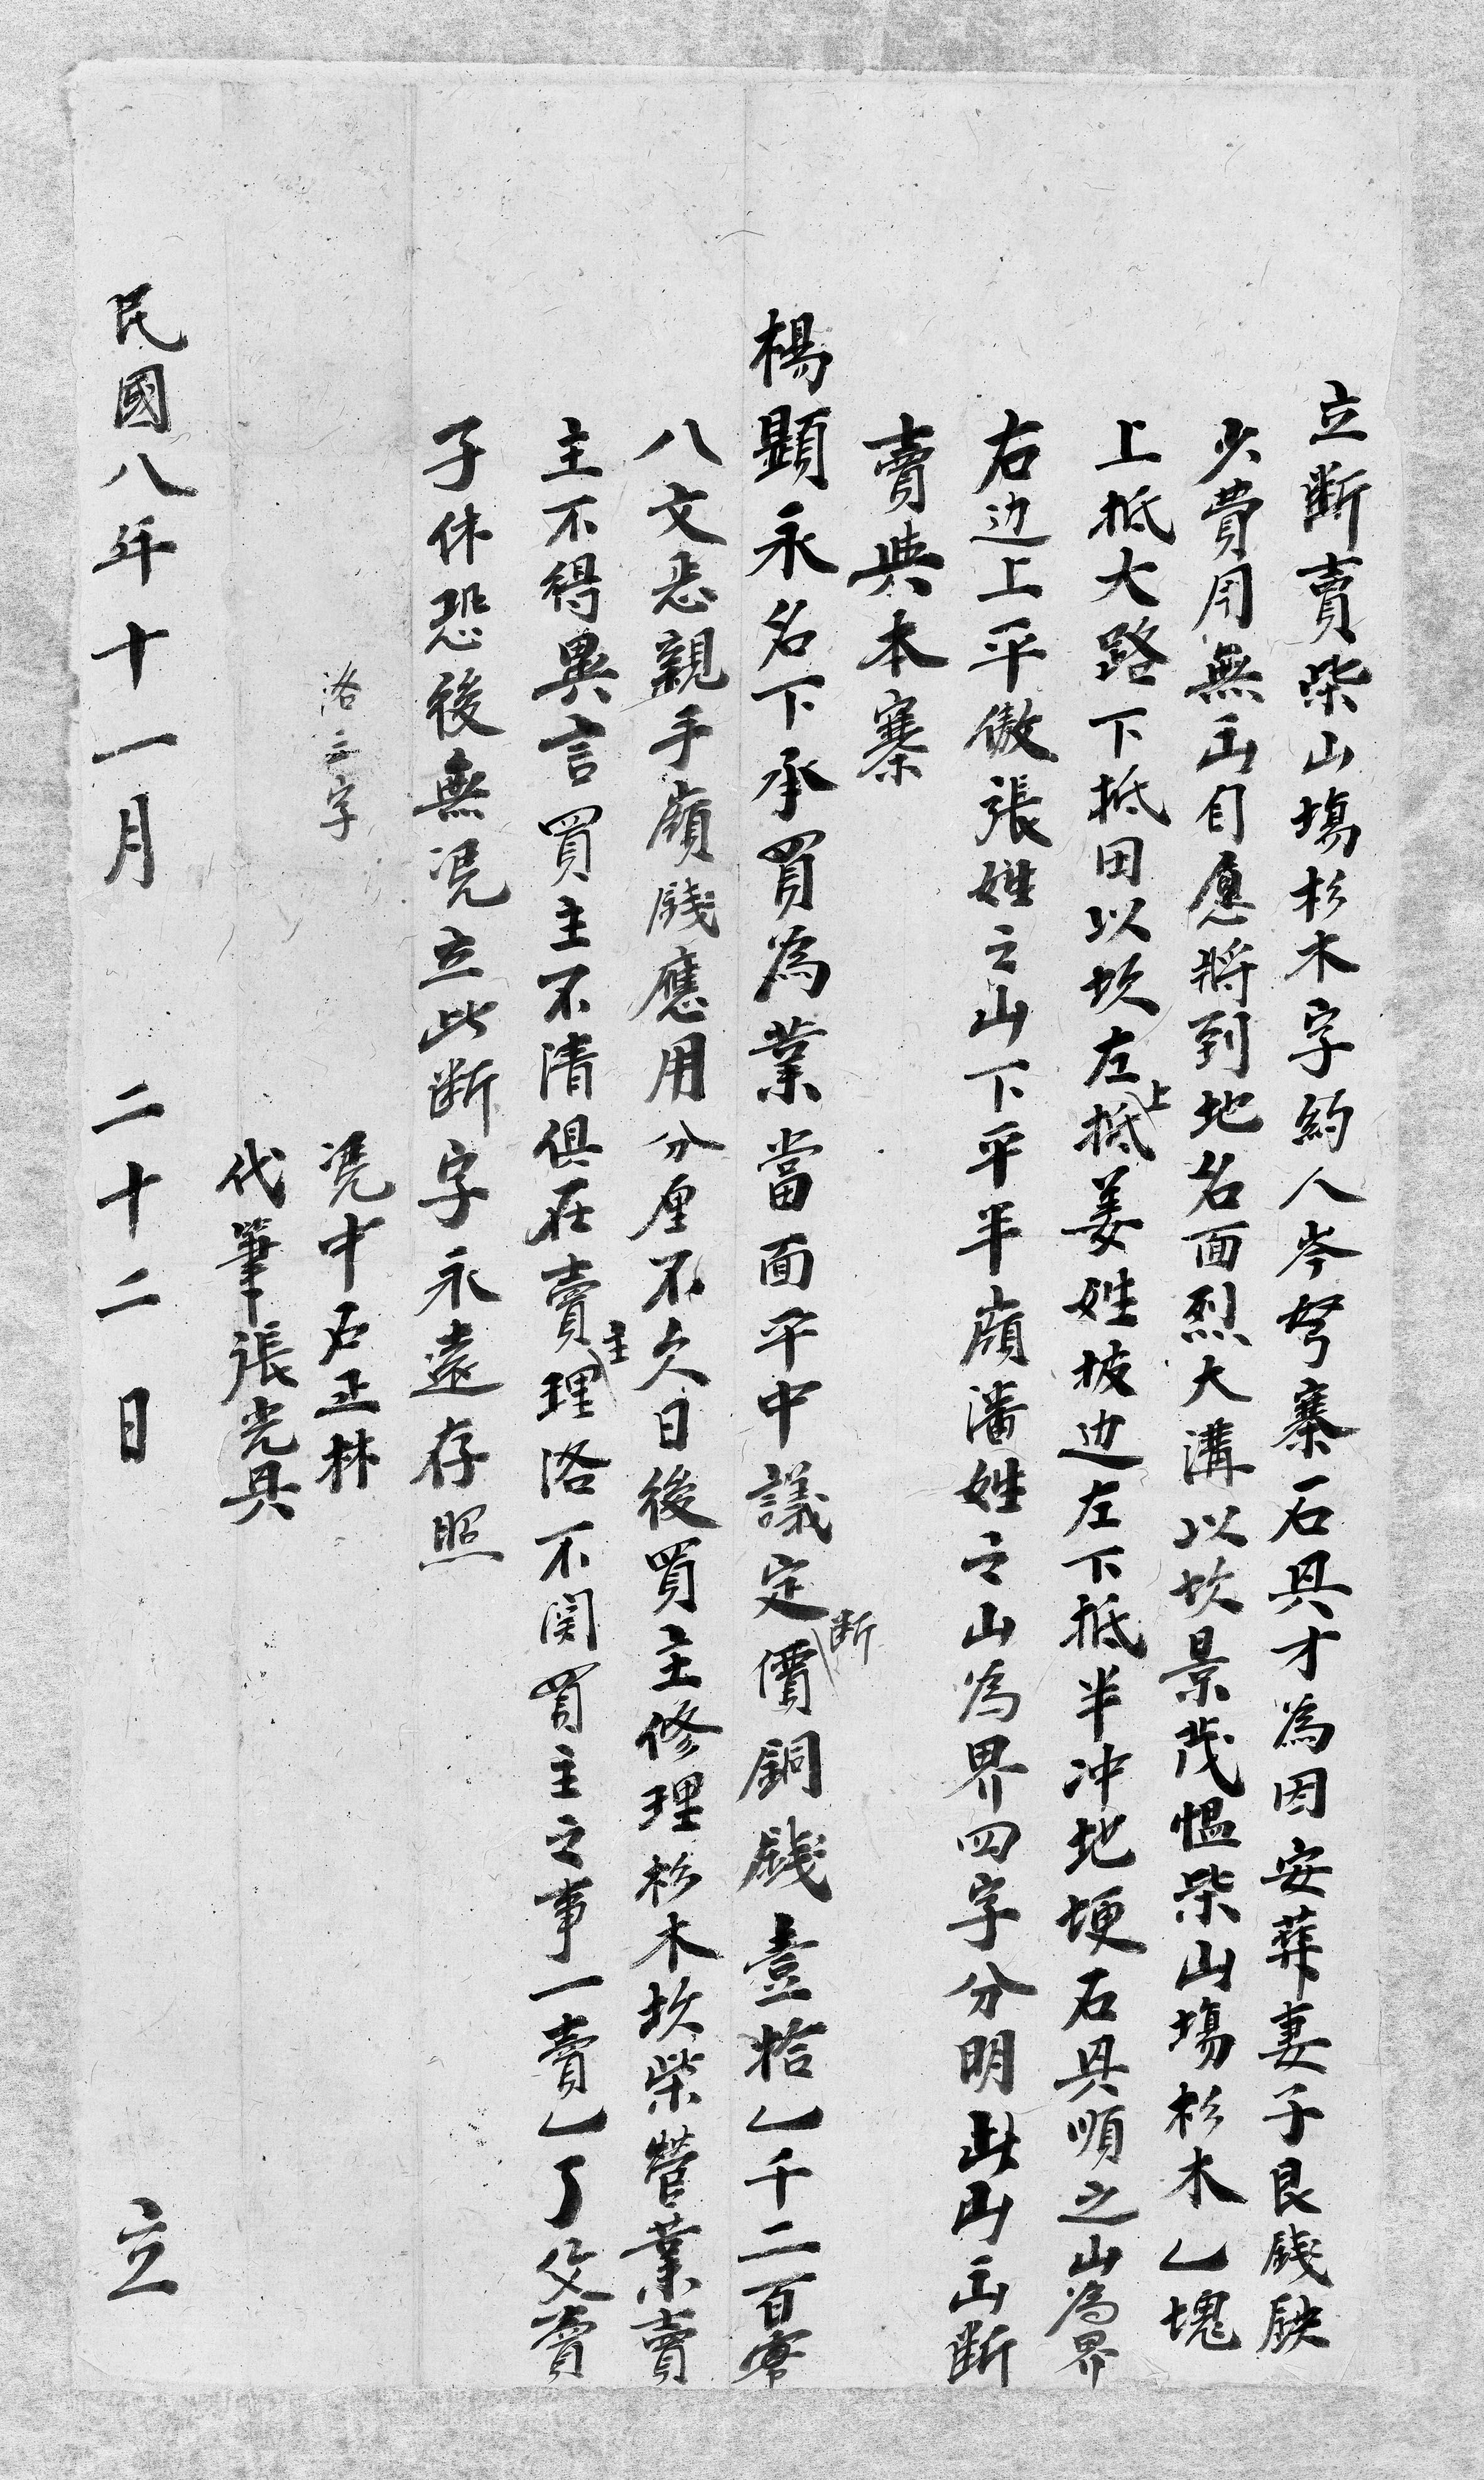 立断賣柴山塲杉木字約人岑努寨石具才為因安葬妻子艮錢缺
少費用無出自愿將到地名面烈大溝以坎景茂愠柴山塲杉木乚塊
上抵大路下抵田以坎左上抵姜姓坡边左下抵半冲地埂石具順之山為界
右边上平傲張姓之山下平半嶺潘姓之山為界四字分明此山出断
賣典本寨
楊顕永名下承買為業當面平中議定断價銅錢壹拾乚千二百零
八文悉親手領錢應用分厘不欠日後買主修理杉木坎柴營業賣
主不得異言買主不清俱在賣主理洛不関買主之事一賣乚了父賣
子休恐後無凭立此断字永遠存照
洛三字
凭中石正林
代筆張光具
民國八年十一月二十二日立